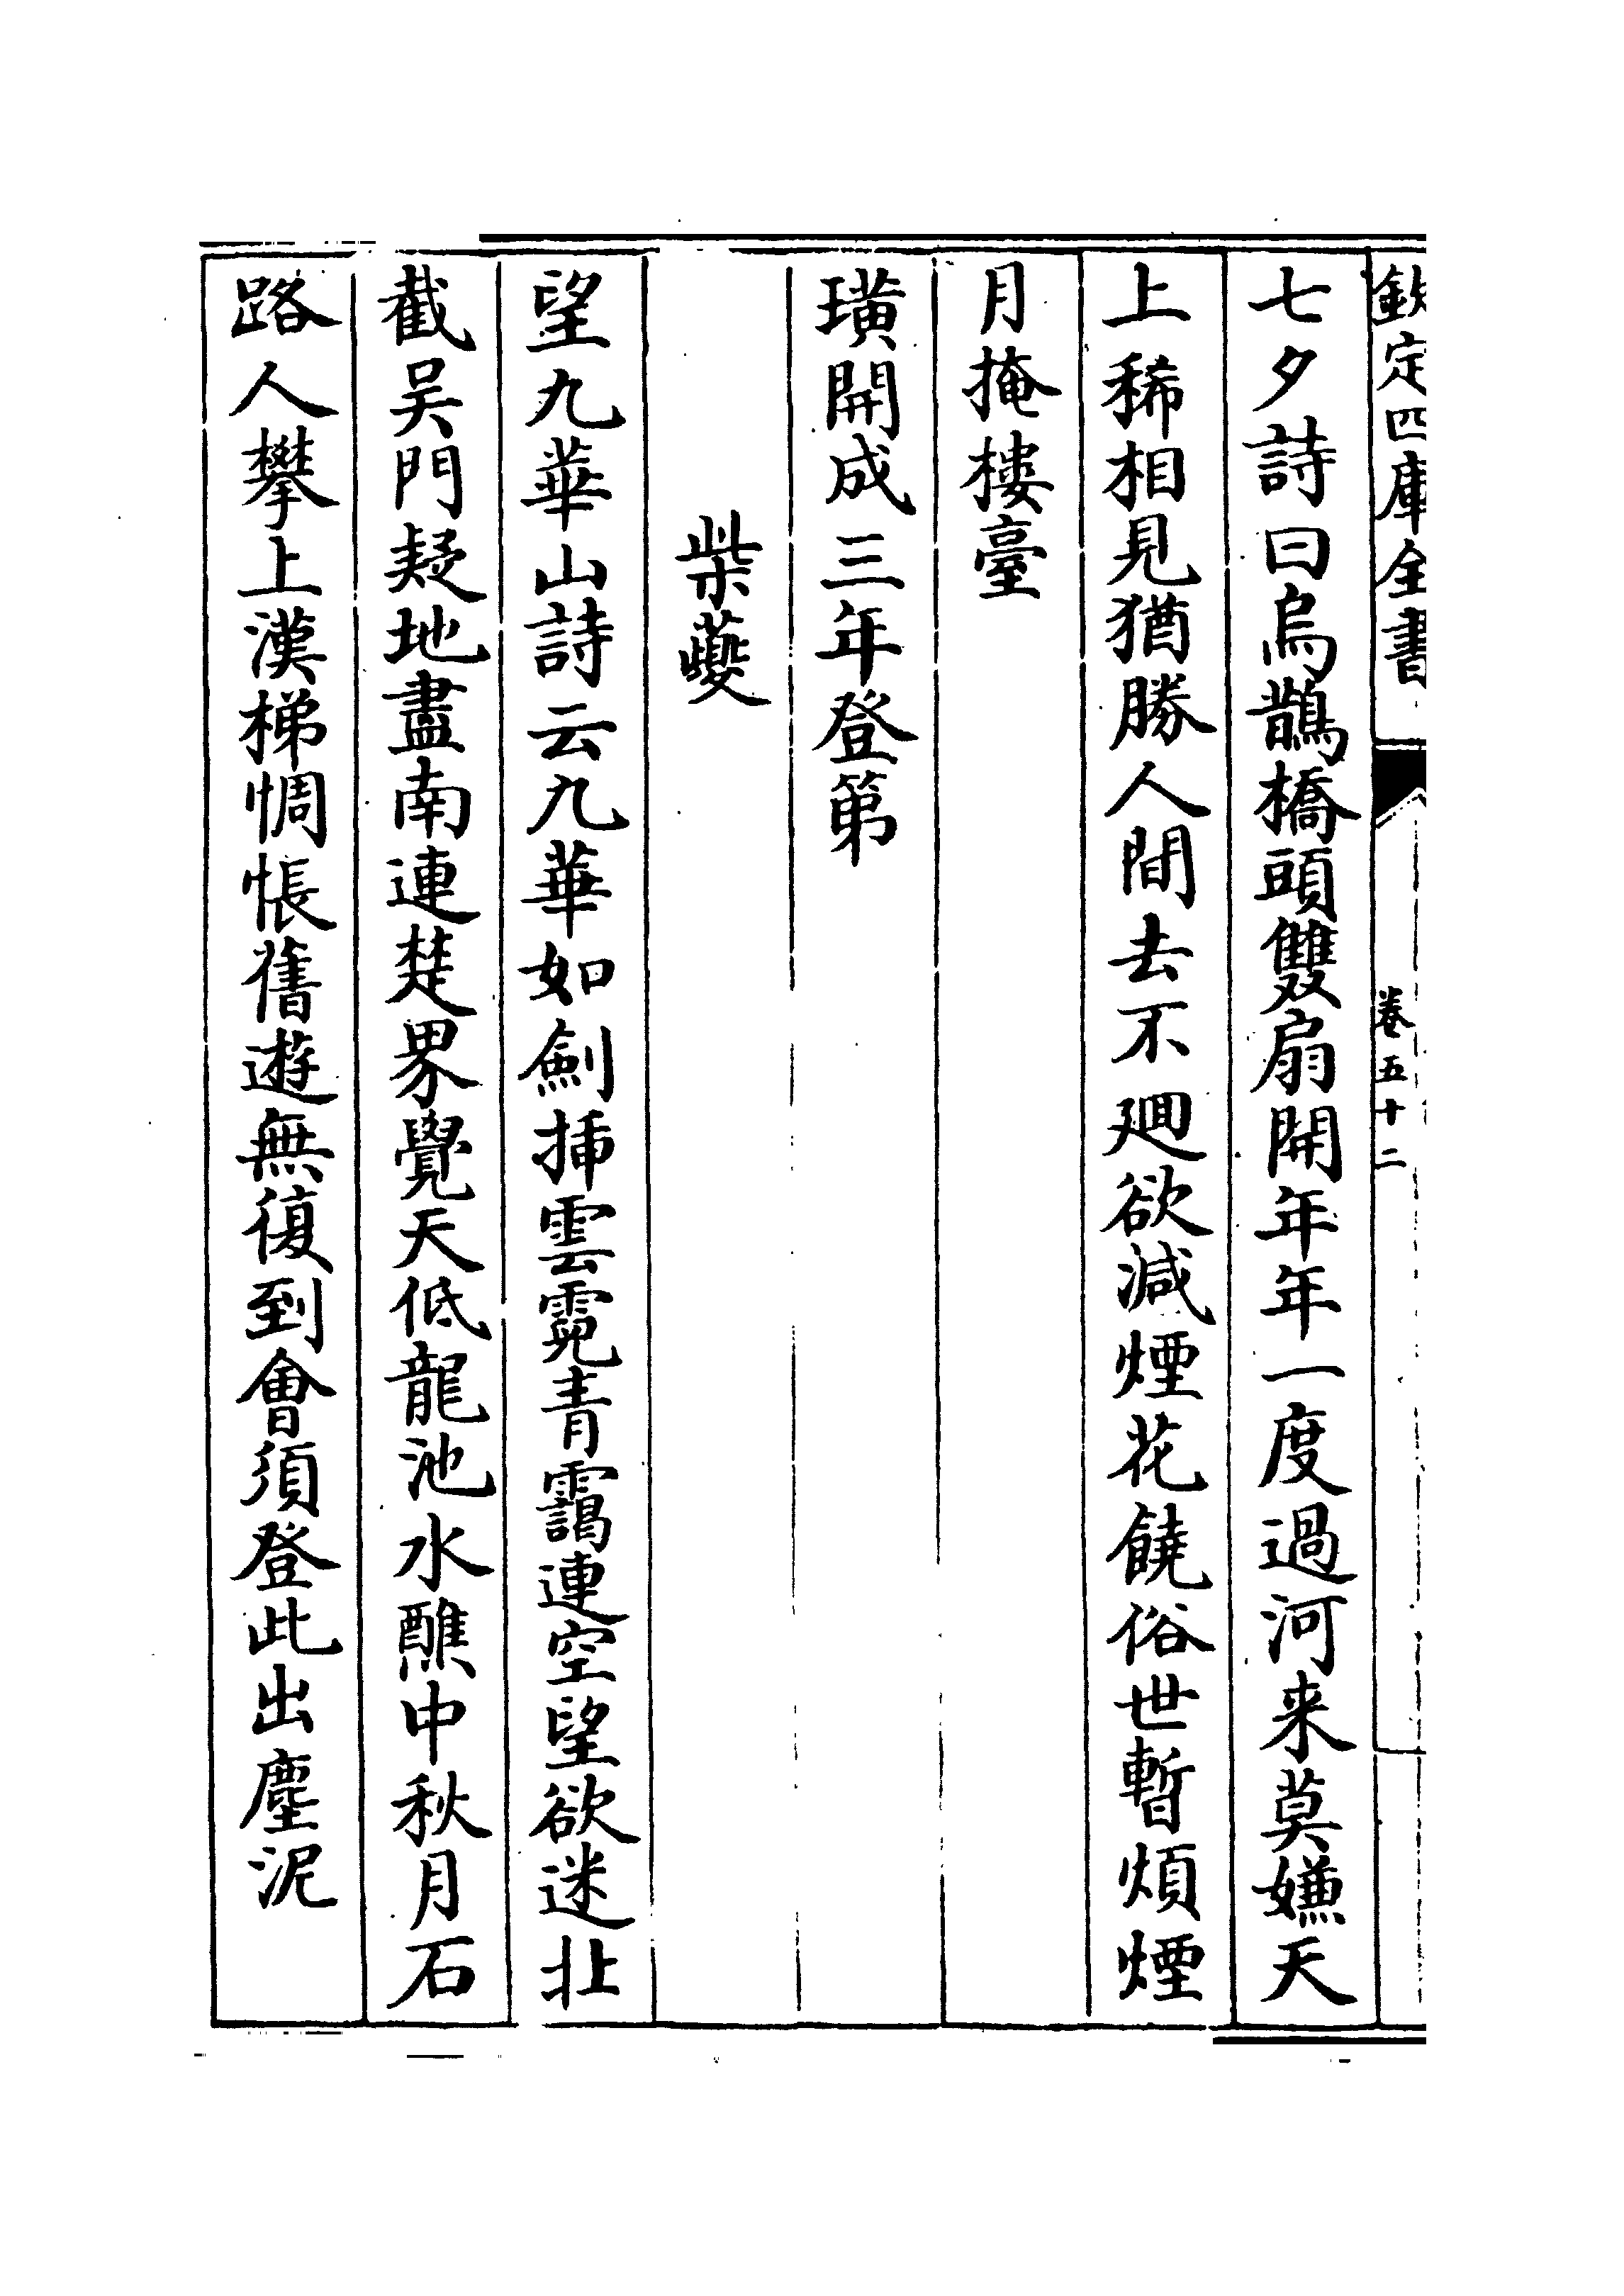 欽定四庫全書
卷五十二
七夕詩曰烏鵲橋頭雙扇開年年一度過河来莫嫌天
上稀相見猶勝人間去不廻欲減煙花饒俗世暫煩煙
月掩樓臺
璜開成三年登第
柴夔
望九華山詩云九華如劍揷雲霓青靄連空望欲迷北
截吳門疑地盡南連楚界覺天低龍池水蘸中秋月石
路人攀上漢梯惆悵舊遊無復到會須登此出塵泥